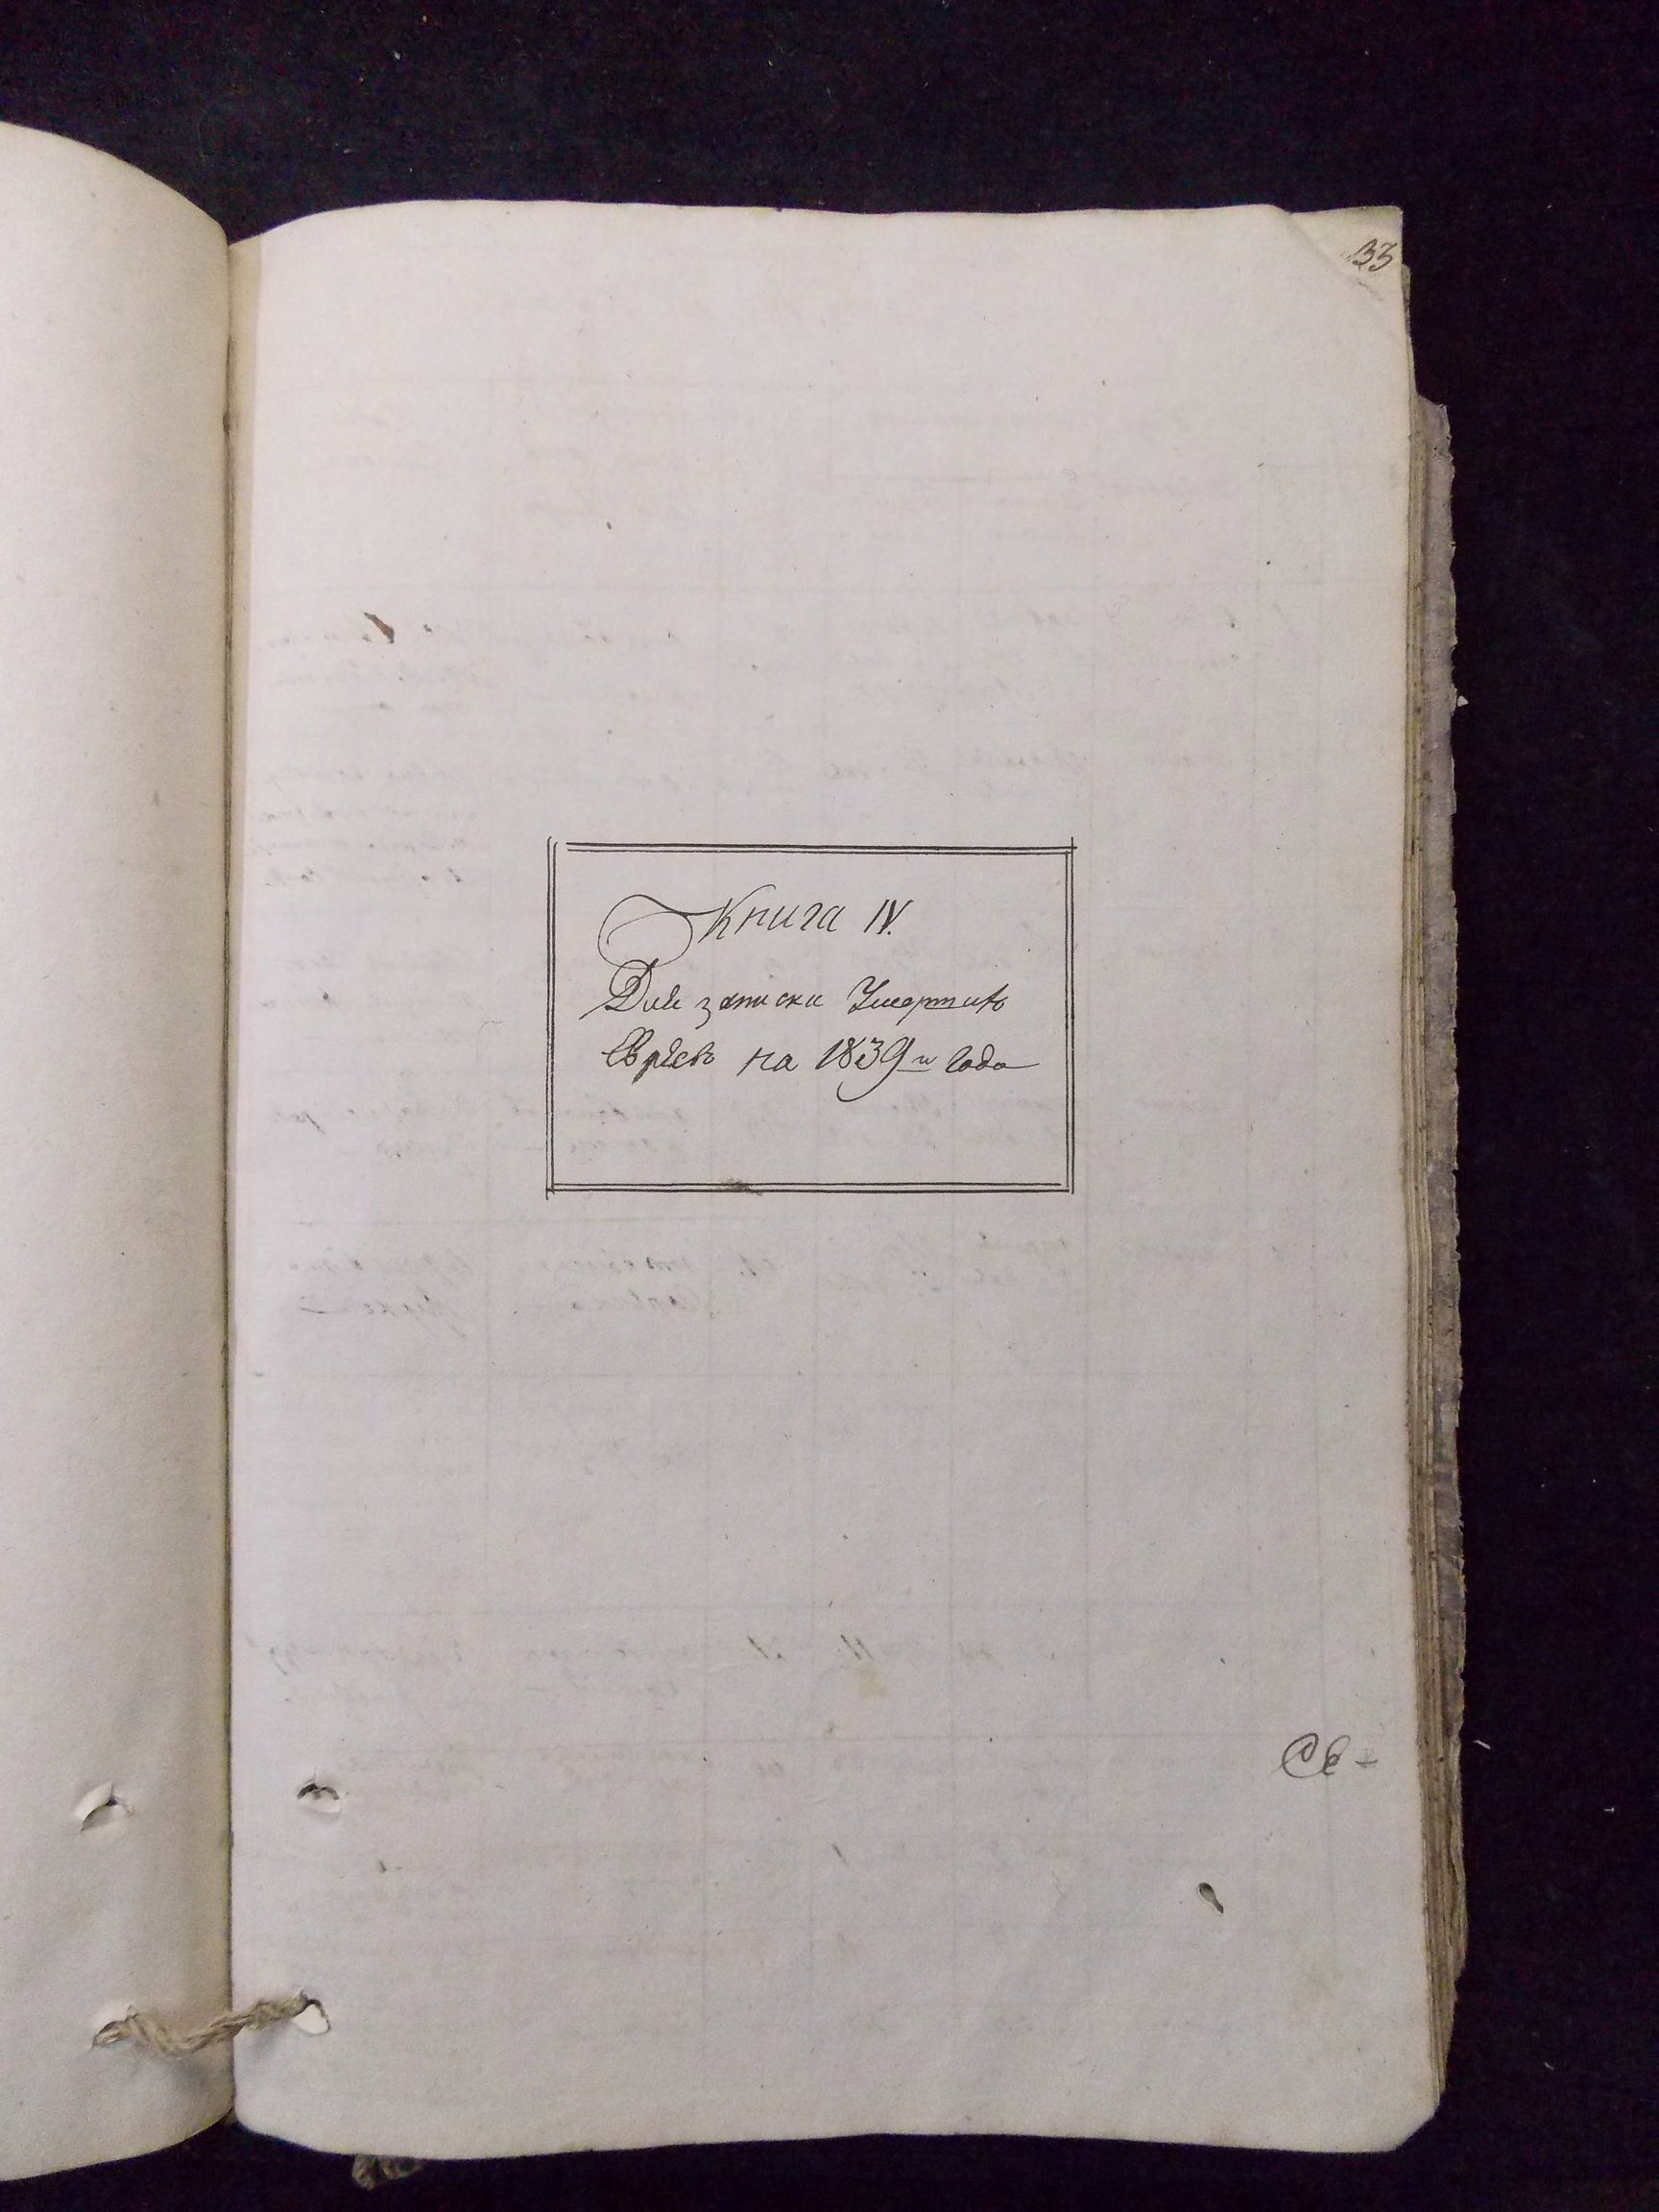 33
Книга IV.
Для записки Умершихъ
Евреевъ на 1839й годъ
Св-